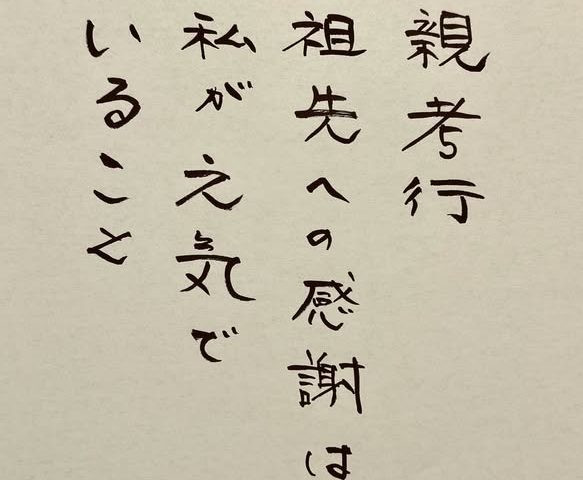 親考行
祖先への感謝は
私が元気で
いること